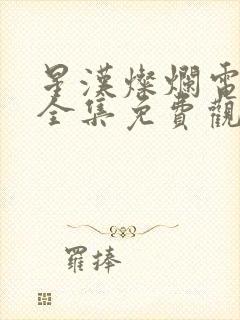 星漢燦爛電
全集免費觀
羅捧